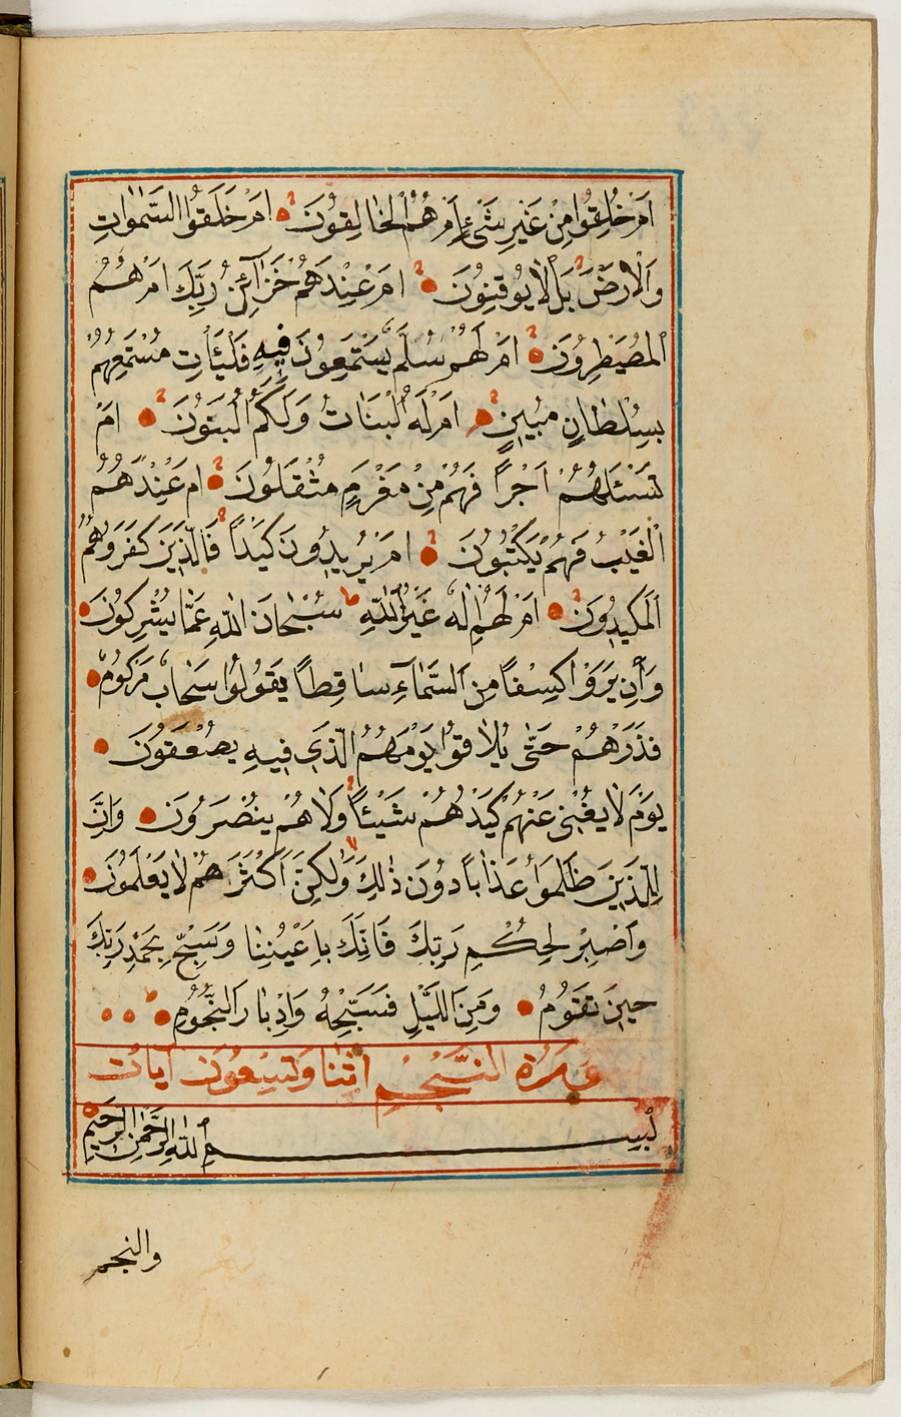 اَمْ خُلِقُوا مِنْ غَيْرِ شَيْءٍ اَمْ هُمُ الْخَالِقُونَ اَمْ خَلَقُوا السَّمٰوَاتِ
وَالْاَرْضَ بَلْ لَا يُوقِنُونَ اَمْ عِنْدَهُمْ خَزَآئِنُ رَبِّكَ اَمْ هُمُ
الْمُصَيْطِرُونَ اَمْ لَهُمْ سُلَّمٌ يَسْتَمِعُونَ فِيهِ فَلْيَأْتِ مُسْتَمِعُهُمْ
بِسُلْطَانٍ مُبِينٍ اَمْ لَهُ الْبَنَاتُ وَلَكُمُ الْبَنُونَ اَمْ
تَسْئَلُهُمْ اَجْرًا فَهُمْ مِنْ مَغْرَمٍ مُثْقَلُونَ اَمْ عِنْدَهُمُ
الْغَيْبُ فَهُمْ يَكْتُبُونَ اَمْ يُرِيدُونَ كَيْدًا فَالَّذِينَ كَفَرُوا هُمُ
الْمَكِيدُونَ اَمْ لَهُمْ اِلٰهٌ غَيْرُ اللّٰهِ سُبْحَانَ اللّٰهِ عَمَّا يُشْرِكُونَ
وَاِنْ يَرَوْا كِسْفًا مِنَ السَّمَآءِ سَاقِطًا يَقُولُوا سَحَابٌ مَرْكُومٌ
فَذَرْهُمْ حَتّٰى يُلَاقُوا يَوْمَهُمُ الَّذِي فِيهِ يُصْعَقُونَ
يَوْمَ لَا يُغْنِي عَنْهُمْ كَيْدُهُمْ شَيْئًا وَلَا هُمْ يُنْصَرُونَ وَاِنَّ
لِلَّذِينَ ظَلَمُوا عَذَابًا دُونَ ذٰلِكَ وَلٰكِنَّ اَكْثَرَهُمْ لَا يَعْلَمُونَ
وَاصْبِرْ لِحُكْمِ رَبِّكَ فَاِنَّكَ بِاَعْيُنِنَا وَسَبِّحْ بِحَمْدِ رَبِّكَ
حِينَ تَقُومُ وَمِنَ اللَّيْلِ فَسَبِّحْهُ وَاِدْبَارَ النُّجُومِ
سورة النَّجْمِ اثنا وَسِتُّونَ آيات
بِسْمِ اللّٰهِ الرَّحْمٰنِ الرَّحِيمِ
والنجم